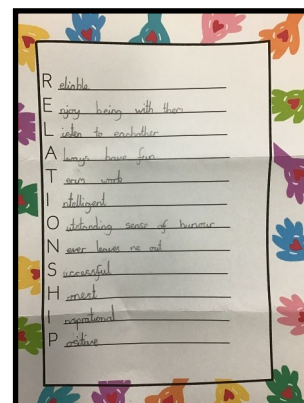 Reliable
Enjoy being with them
Listen to eachother
Always have fun
Team work
Intelligent
Outstanding sense of humour
Never leaves me out
Successful
Honest
Inspirational
Positive